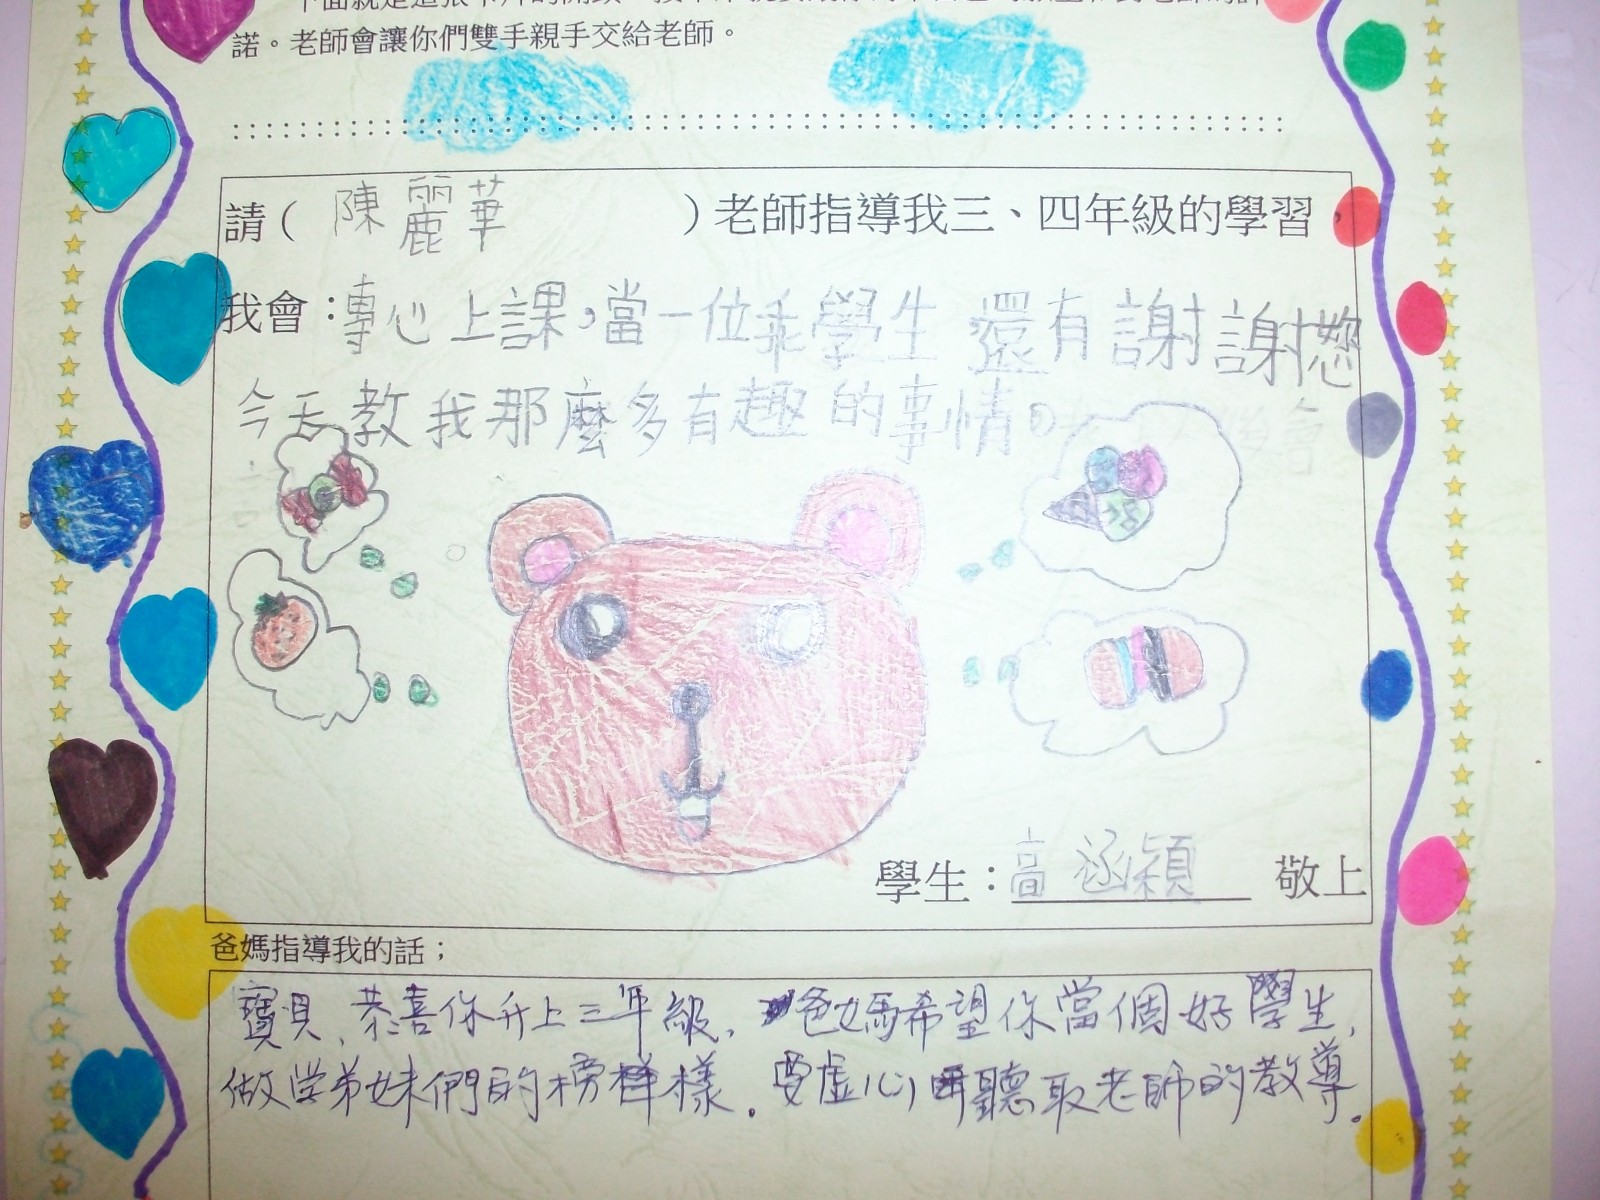 諾。老師會讓你們雙手親手交給老師。
請（陳麗華）老師指導我三、四年級的學習
我會：專心上課，當一位乖學生 還有謝謝您
今天教我那麼多有趣的事情。
學生：高涵穎 敬上
爸媽指導我的話；
寶貝，恭喜你升上三年級，爸媽希望你當個好學生，
做学弟妹們的榜樣。要虛心聽取老師的教導。